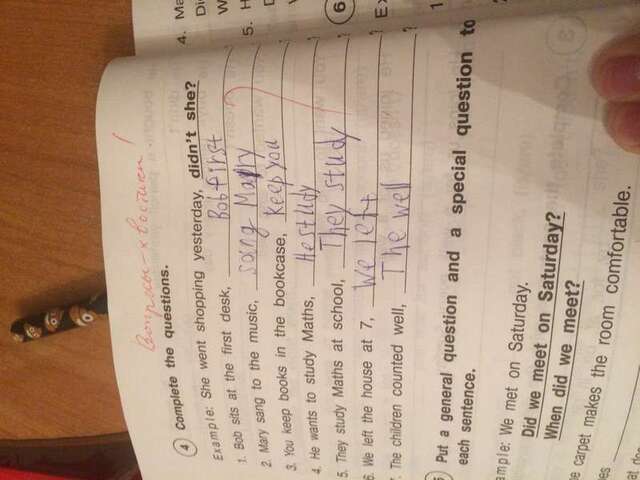 Вопросы-хвостики!
4 Complete the questions.
Example: She went shopping yesterday, didn't she?
1. Bob sits at the first desk, Bob first
2. Mary sang to the music, song Marry ?
3. You keep books in the bookcase, Keep you ?
4. He wants to study Maths, He study ?
5. They study Maths at school, They study ?
6. We left the house at 7, We left ?
7. The children counted well, The well ?
Put a general question and a special question to
each sentence.
ample: We met on Saturday.
Did we meet on Saturday?
When did we meet?
carpet makes the room comfortable.
4. Ma
Di
W
5. H
6
Ex
1